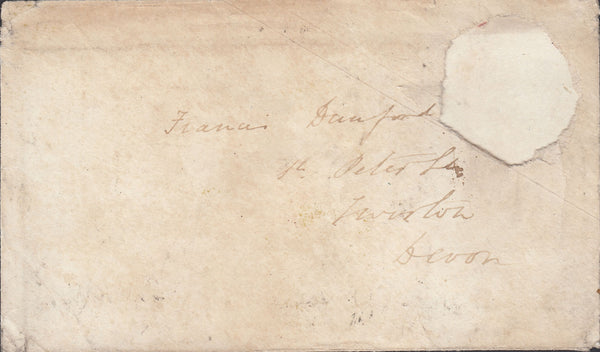 Francis Dunsford
St. Peter St.
Tiverton
Devon